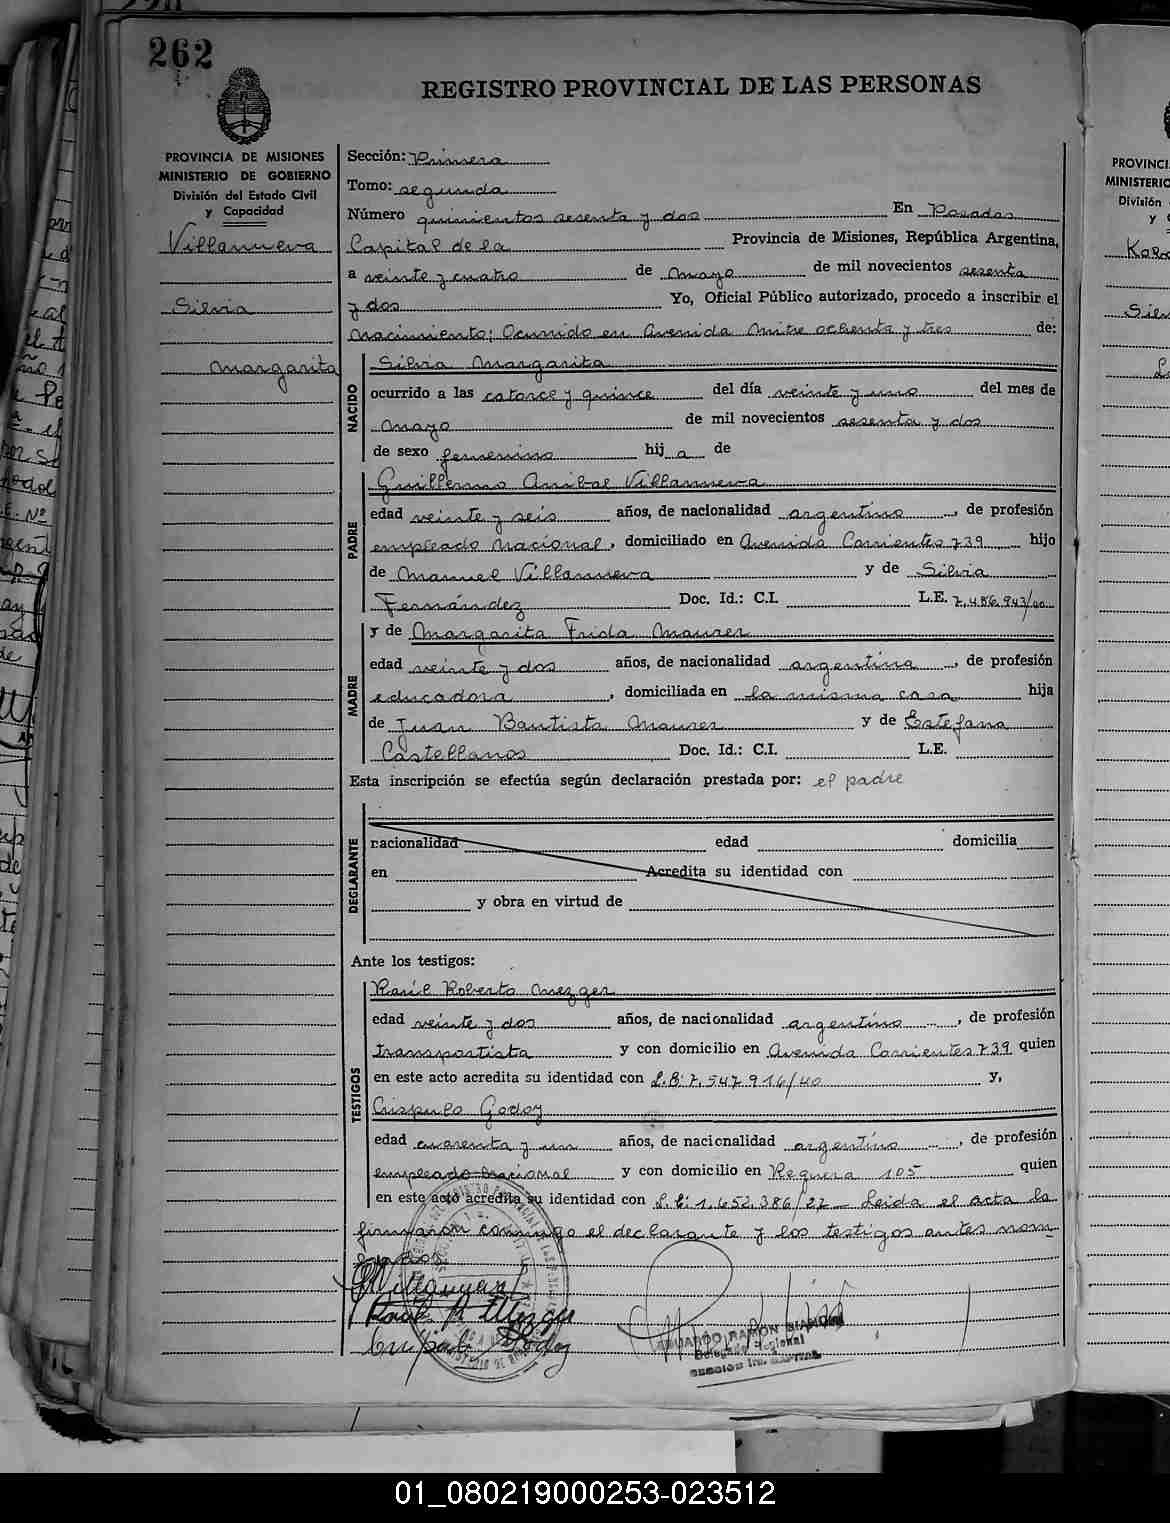 262
REGISTRO PROVINCIAL DE LAS PERSONAS
PROVINCIA DE MISIONES
MINISTERIO DE GOBIERNO
División del Estado Civil
y Capacidad
Villanueva
Silvia
Margarita
Sección: Primera
Tomo: segunda
Número quinientos sesenta y dos En Posadas
Capital de la Provincia de Misiones, República Argentina,
a veinte y cuatro de mayo de mil novecientos sesenta
y dos Yo, Oficial Público autorizado, procedo a inscribir el
nacimiento; Ocurrido en Avenida Mitre ochenta y tres de:
NACIDO
Silvia Margarita
ocurrido a las catorce y quince del día veinte y uno del mes de
mayo de mil novecientos sesenta y dos
de sexo femenino hij a de
PADRE
Guillermo Anibal Villanueva
edad veinte y seis años, de nacionalidad argentino, de profesión
empleado nacional, domiciliado en Avenida Corrientes 739 hijo
de Manuel Villanueva y de Silvia
Fernández Doc. Id.: C.I. L.E. 7.486.943/40
MADRE
y de Margarita Frida Maurer
edad veinte y dos años, de nacionalidad argentina, de profesión
educadora, domiciliada en la misma casa hija
de Juan Bautista Maurer y de Estefana
Castellanos Doc. Id.: C.I. L.E.
Esta inscripción se efectúa según declaración prestada por: el padre
DECLARANTE
nacionalidad edad domicilia
en Acredita su identidad con
y obra en virtud de
Ante los testigos:
TESTIGOS
Raúl Roberto Mezger
edad veinte y dos años, de nacionalidad argentino, de profesión
transportista y con domicilio en Avenida Corrientes 739 quien
en este acto acredita su identidad con L.E: 7.547.916/40 y,
Crispulo Godoy
edad cuarenta y un años, de nacionalidad argentino, de profesión
empleado nacional y con domicilio en Requera 105 quien
en este acto acredita su identidad con L.E: 1.652.386/27 - Leida el acta la
firmaron conmigo el declarante y los testigos antes nom
brados
Villanueva
Raúl R Mezger
Crispulo Godoy
EDUARDO RAMON
Delegado Regional
SECCION 1ra. CAPITAL
PROVINCI
MINISTERIO
División
y
01_080219000253-023512